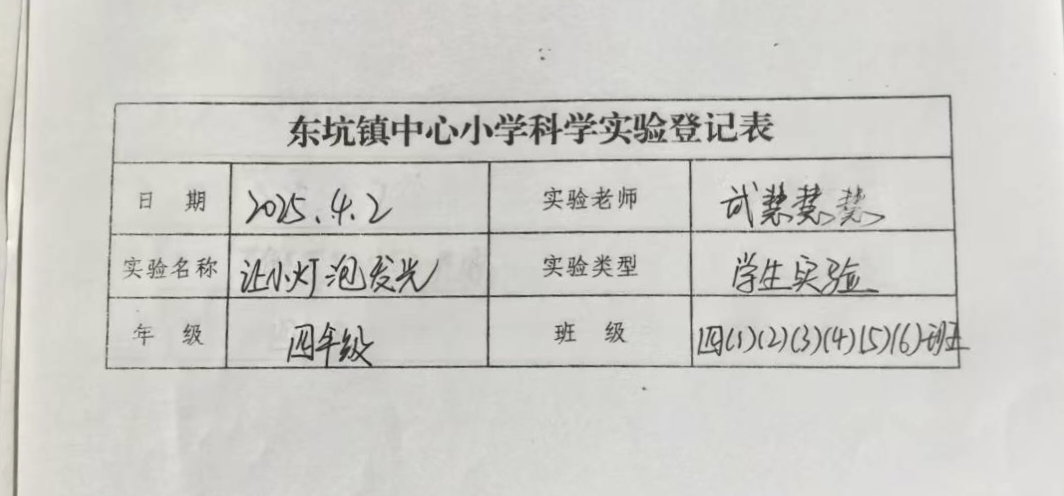 东坑镇中心小学科学实验登记表
日 期 2025.4.2 实验老师
实验名称 让小灯泡发光 实验类型 学生实验
年 级 四年级 班 级 四(1)(2)(3)(4)(5)(6)班